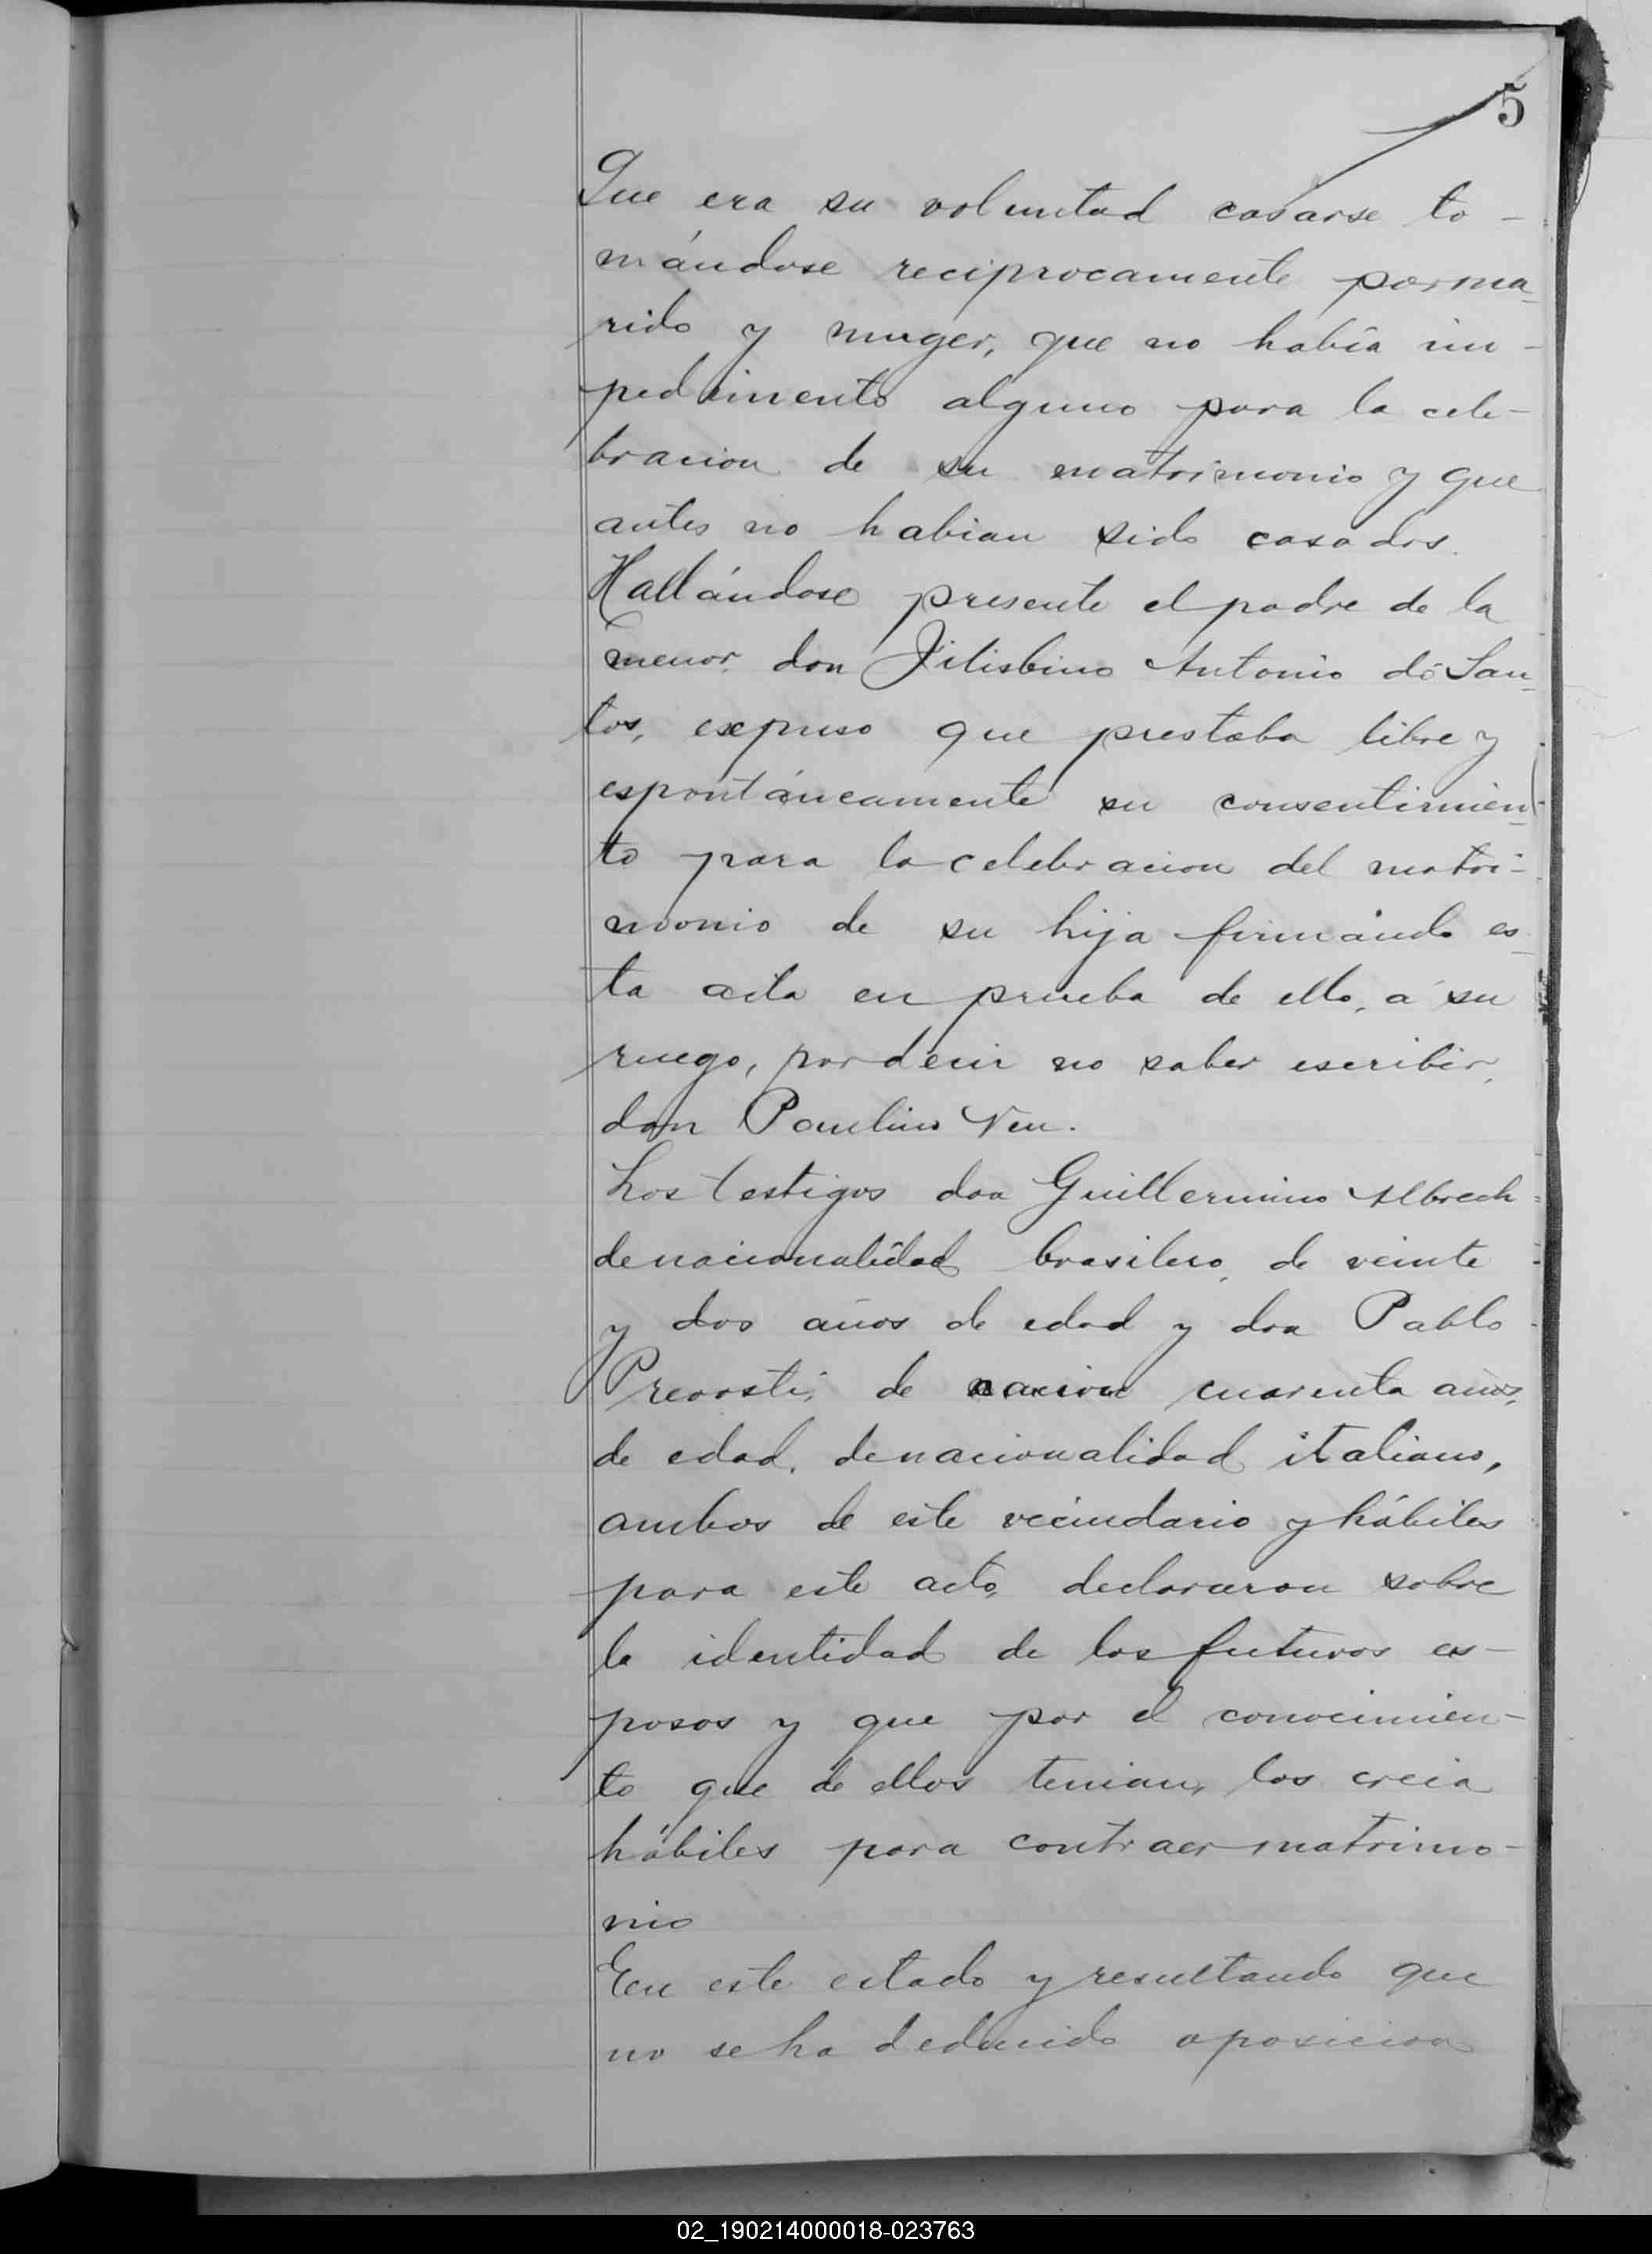 5
Que era su voluntad casarse to-
mándose reciprocamente por ma-
rido y muger, que no había im-
pedimento alguno para la cele-
bracion de su matrimonio y que
antes no habian sido casados.
Hallándose presente el padre de la
menor, don Antonio do San-
tos, expuso que prestaba libre y
espontáneamente su consentimien-
to para la celebracion del matri-
monio de su hija firmando es-
ta acta en prueba de ello, a su
ruego, por decir no saber escribir,
don Paulino
Los testigos don Guillermino Albrech
de nacionalidad brasilero, de veinte
y dos años de edad y don Pablo
de cuarenta años,
de edad, de nacionalidad italiano,
ambos de este vecindario y hábiles
para este acto, declararon sobre
la identidad de los futuros es-
posos y que por el conocimien-
to que de ellos tenian, los creia
hábiles para contraer matrimo-
nio
En este estado y resultando que
no se ha deducido oposicion
02_190214000018-023763